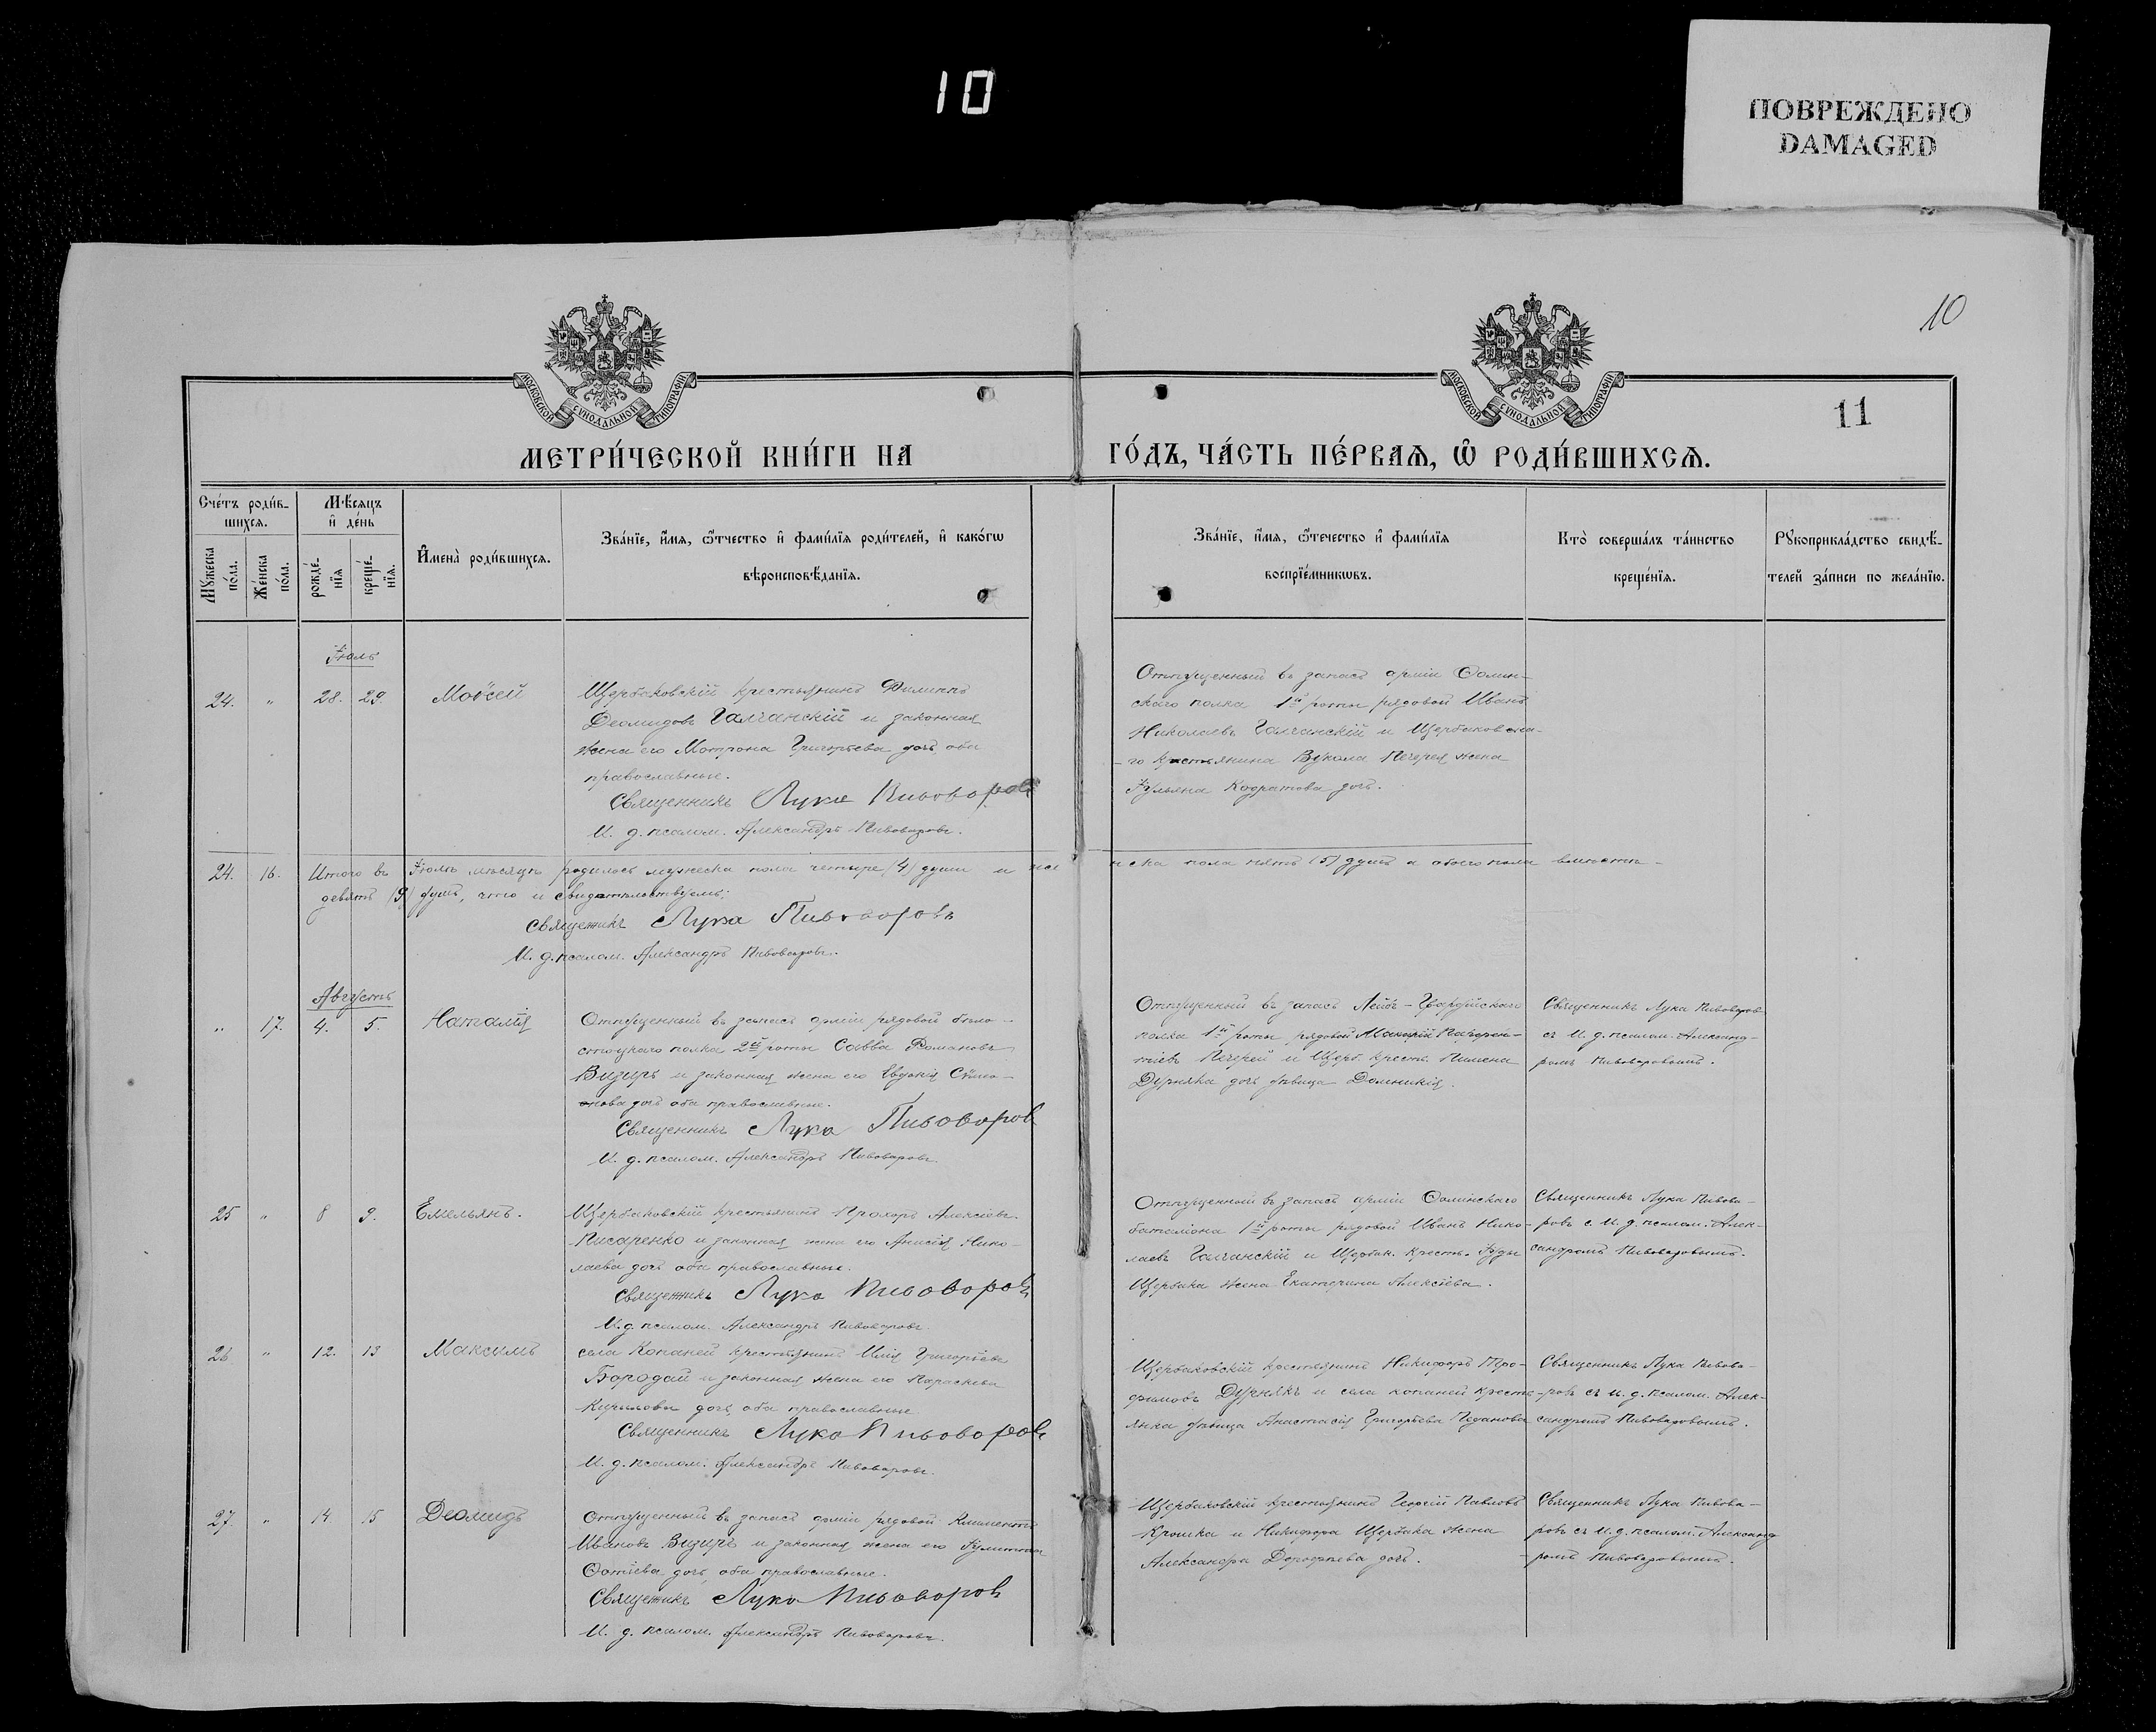 10
ПОВРЕЖДЕНО
DAMAGED
10
11
МОСКОВСКОЙ СѴНОДАЛЬНОЙ ТИПОГРАФІИ
МОСКОВСКОЙ СѴНОДАЛЬНОЙ ТИПОГРАФІИ
МЕТРИ́ЧЕСКОЙ КНИ́ГИ НА ГО́ДЪ, ЧА́СТЬ ПЕ́РВАѦ, Ѡ҆ РОДИ́ВШИХСѦ.
Сче́тъ роди́в-
шихсѧ.
Мꙋ́жеска по́ла.
Же́нска по́ла.
Мѣ́сѧцъ
и҆ де́нь
рожде́-
нїѧ
креще́-
нїѧ.
И҆мена̀ роди́вшихсѧ.
Зва́нїе, и҆́мѧ, ѻ҆́тчество и҆ фами́лїѧ роди́телей, и҆ како́гѡ
вѣроисповѣ́данїѧ.
Зва́нїе, и҆́мѧ, ѻ҆́течество и҆ фами́лїѧ
воспрїе́мникѡвъ.
Кто̀ соверша́лъ та́инство
креще́нїѧ.
Рꙋкоприкла́дство свидѣ́-
телей за́писи по жела́нїю.
Іюль
24. " 28. 29. Моѵсей
Щербаковскій крестьянинъ Филиппъ
Деомидовъ Галчанскій и законная
жена его Мотрона Григорьева дочь, оба
православные.
Священникъ Лука Пивоваровъ
И. д. псалом. Александръ Пивоваровъ.
Отпущенный въ запасъ арміи Ѳомин-
скаго полка 1й роты рядовой Иванъ
Николаевъ Галчанскій и Щербаковска-
го крестьянина Вукола Печерея жена
Іульяна Кодратова дочь.
24. 16. Итого въ Іюлѣ мѣсяцѣ родилось мужеска пола четыре (4) души и женска пола пять (5) душъ а обоего пола вмѣстѣ -
девять (9) душъ, что и свидѣтельствуемъ:
Священникъ Лука Пивоваровъ
И. д. псалом. Александръ Пивоваровъ.
Августъ
" 17. 4. 5. Наталія
Отпущенный въ запасъ арміи рядовой бѣло-
стоцкаго полка 2й роты Савва Романовъ
Визирь и законная жена его Евдокія Сѵмо-
нова дочь оба православные.
Священникъ Лука Пивоваровъ
И. д. псалом. Александръ Пивоваровъ
Отпущенный въ запасъ Лейбъ-Гвардейскаго
полка 1й роты рядовой Макарій
Печерей и Щерб. крест. Пимена
Дурняка дочь дѣвица Домникія.
Священникъ Лука Пивоваровъ
съ И. д. псалом. Александ-
ромъ Пивоваровымъ.
25 " 8 9. Емельянъ.
Щербаковскій крестьянинъ Прохоръ Алексіевъ
Писаренко и законная жена его Анисія Нико-
лаева дочь оба православные.
Священникъ Лука Пивоваровъ
И. д. псалом. Александръ Пивоваровъ.
Отпущенный въ запасъ арміи Ѳоминскаго
баталіона 1й роты рядовой Иванъ Нико-
лаевъ Галчанскій и Щербак. крест. Іуды
Щербака жена Екатерина Алексіева.
Священникъ Лука Пивова-
ровъ с. И. д. псалом. Алек-
сандромъ Пивоваровымъ.
26 " 12. 13 Максимъ
села Копаней крестьянинъ Илія Григорьевъ
Бородай и законная жена его Параскева
Кирилова дочь, оба православные
Священникъ Лука Пивоваровъ
И. д. псалом. Александръ Пивоваровъ.
Щербаковскій крестьянинъ Никифоръ Тро-
фимовъ Дурнякъ и села копаней кресть-
янка дѣвица Анастасія Григорьева
Священникъ Лука Пивова-
ровъ съ И. д. псалом. Алек-
сандромъ Пивоваровымъ.
27. " 14 15 Деомидъ
Отпущенный въ запасъ арміи рядовой Климентъ
Ивановъ Визирь и законная жена его Іулитта
Фотіева дочь, оба православные.
Священникъ Лука Пивоваровъ
И. д. псалом. Александръ Пивоваровъ.
Щербаковскій крестьянинъ Георгій Павловъ
Крошка и Никифора Щербака жена
Александра дочь.
Священникъ Лука Пивова-
ровъ съ И. д. псалом. Александ-
ромъ Пивоваровымъ.